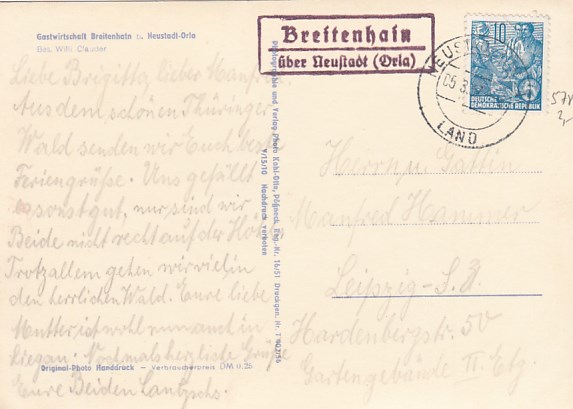 Gastwirtschaft Breitenhain b. Neustadt-Orla
Bes. Willi Clauder
Liebe Brigitta, lieber Manfred.
Aus dem schönen Thüringer
Wald senden wir Euch beste
Feriengrüße. Uns gefällt
es sonst gut, nur sind wir
Beide nicht recht auf der Höhe
Trotzallem gehen wir viel in
den herrlichen Wald. Eure liebe
Mutter ist wohl nun auch in
Nochmals herzliche Grüße
Eure Beiden
Original-Photo Handdruck — Verbraucherpreis DM 0.26
Photographie und Verlag Photo Kahl-Otto, Pößneck, Reg.-Nr. 16/51 Druckgen. Nr. T 902/56
V/15/10 Nachdruck verboten
Breitenhain
über Neustadt (Orla)
NEUSTADT
LAND
10
DEUTSCHE
DEMOKRATISCHE REPUBLIK
Herrn u. Gattin
Manfred Hammer
Leipzig - S. 3.
Hardenbergstr. 50
Gartengebäude II. Etg.